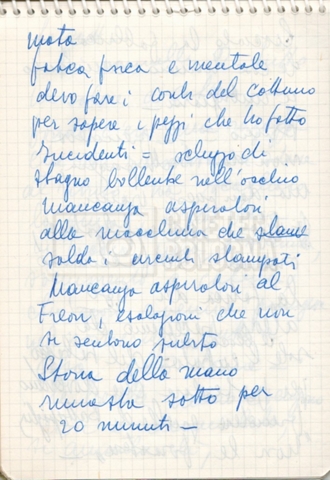 nota
fatica fisica e mentale
devo fare i conti del cottimo
per sapere i pezzi che ho fatto
Incidenti = schizzo di
stagno bollente nell'occhio
Mancanza aspiratori
alla macchina che stame
salda i circuiti stampati
Mancanza aspiratori al
Freon, esalazioni che non
si sentono subito
Storia della mano
rimasta sotto per
20 minuti —